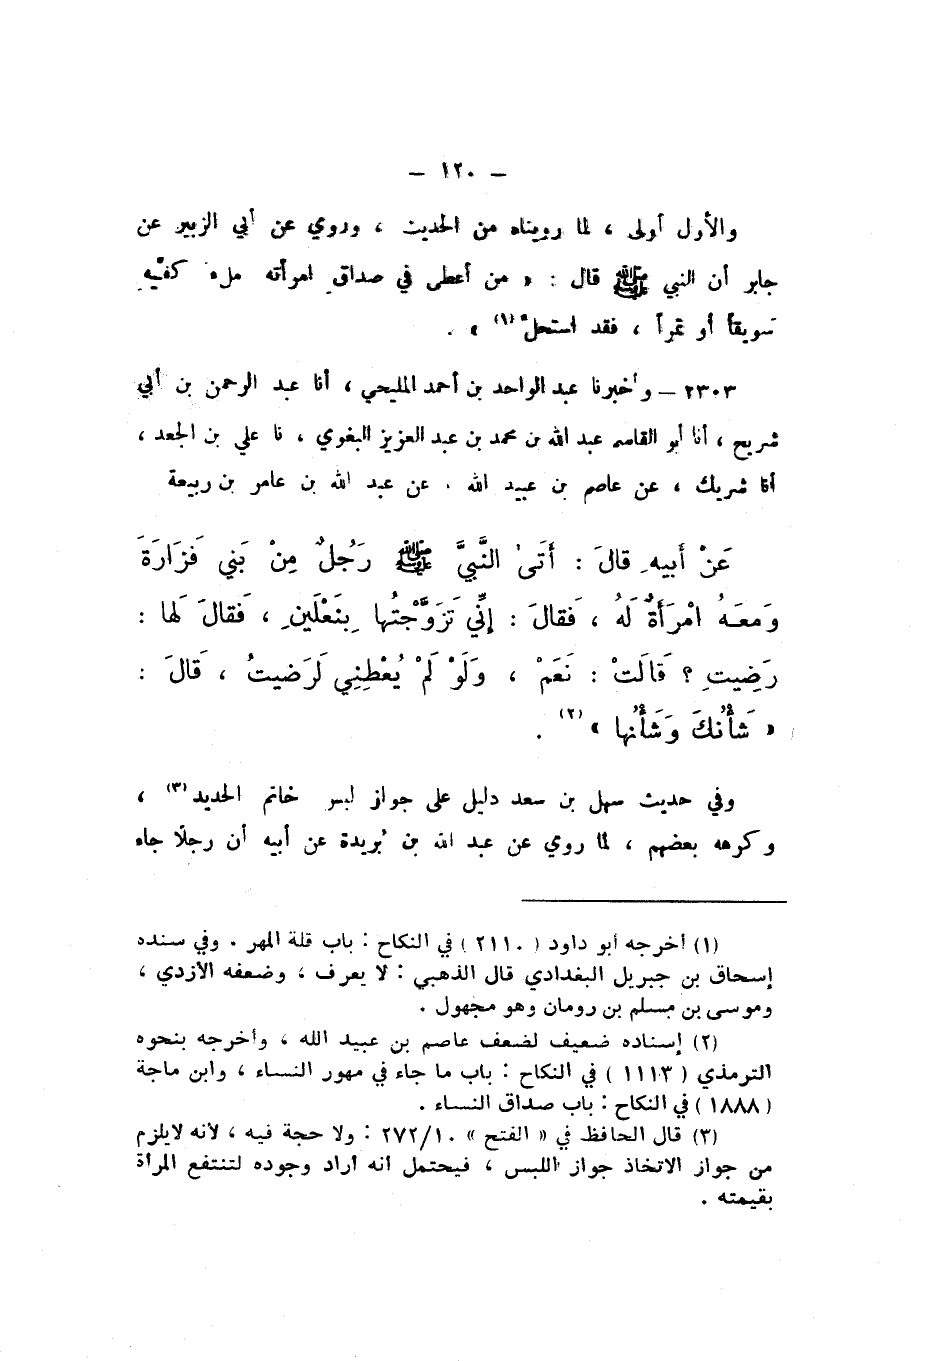 – ١٢٠ –
والأول أولى ، لما رويناه من الحديث ، وروي عن أبي الزبير عن
جابر أن النبي ﷺ قال : « من أعطى في صداق امرأته ملء كفيه
سويقاً أو تمراً ، فقد استحل (١) » .
٢٣٠٣ – وأخبرنا عبد الواحد بن أحمد المليحي ، أنا عبد الرحمن بن أبي
شريح ، أنا أبو القاسم عبد الله بن محمد بن عبد العزيز البغوي ، نا علي بن الجعد ،
أنا شريك ، عن عاصم بن عبيد الله ، عن عبد الله بن عامر بن ربيعة
عَنْ أَبيهِ قالَ : أَتَى النَّبِيَّ ﷺ رَجُلٌ مِنْ بَني فَزَارَةَ
وَمَعَهُ امْرَأَةٌ لَهُ ، فَقالَ : إِنِّي تَزَوَّجْتُها بِنَعْلَينِ ، فَقالَ لَها :
رَضِيتِ ؟ قَالَتْ : نَعَمْ ، وَلَوْ لَمْ يُعْطِنِي لَرَضيتُ ، قَالَ :
« شَأْنُكَ وَشَأْنُها » (٢) .
وفي حديث سهل بن سعد دليل على جواز لبس خاتم الحديد (٣) ،
وكرهه بعضهم ، لما روي عن عبد الله بن بُريدة عن أبيه أن رجلًا جاء
(١) أخرجه أبو داود ( ٢١١٠ ) في النكاح : باب قلة المهر . وفي سنده
إسحاق بن جبريل البغدادي قال الذهبي : لا يعرف ، وضعفه الأزدي ،
وموسى بن مسلم بن رومان وهو مجهول .
(٢) إسناده ضعيف لضعف عاصم بن عبيد الله ، وأخرجه بنحوه
الترمذي ( ١١١٣ ) في النكاح : باب ما جاء في مهور النساء ، وابن ماجة
( ١٨٨٨ ) في النكاح : باب صداق النساء .
(٣) قال الحافظ في « الفتح » ٢٧٢/١٠ : ولا حجة فيه ، لأنه لا يلزم
من جواز الاتخاذ جواز اللبس ، فيحتمل أنه أراد وجوده لتنتفع المرأة
بقيمته .